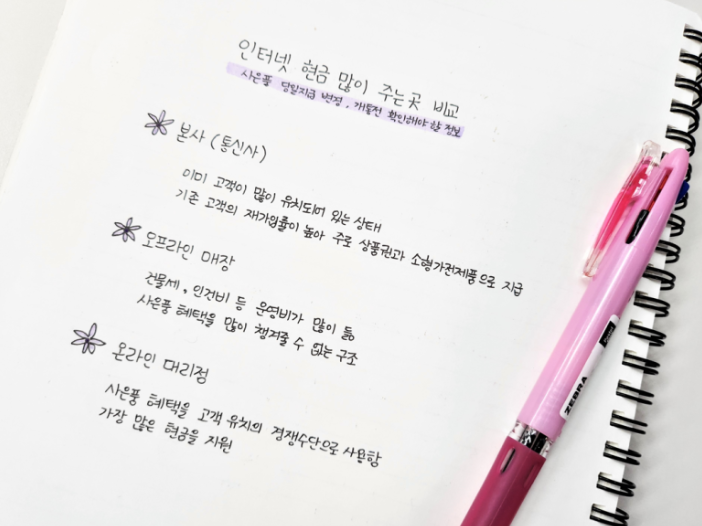 인터넷 현금 많이 주는곳 비교
사은품 당일지급 변경, 개통전 확인해야 할 정보
본사 (통신사)
이미 고객이 많이 유치되어 있는 상태
기존 고객의 재가입률이 높아 주로 상품권과 소형가전제품으로 지급
오프라인 매장
건물세, 인건비 등 운영비가 많이 듦
사은품 혜택을 많이 챙겨줄 수 없는 구조
온라인 대리점
사은품 혜택을 고객 유치의 경쟁수단으로 사용함
가장 많은 현금을 지원
ZEBRA